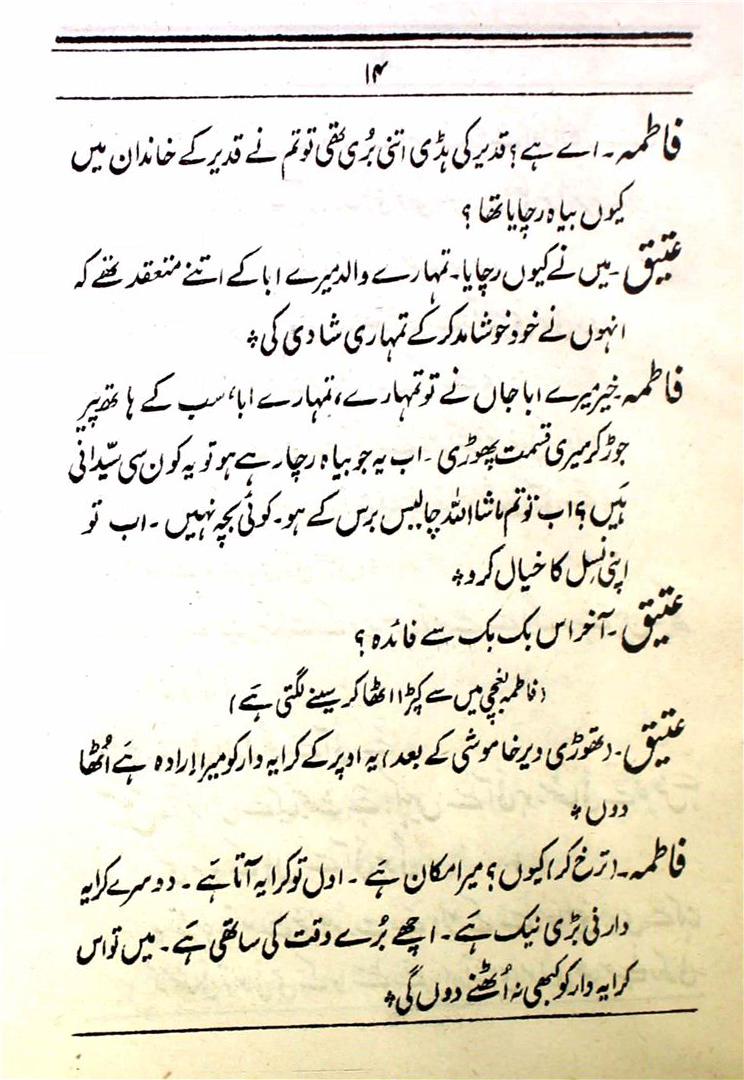 ۱۴
فاطمہ۔ اے ہے؟ قدیر کی ہڈی اتنی بُری تھی تو تم نے قدیر کے خاندان میں
کیوں بیاہ رچایا تھا؟
عتیق۔ میں نے کیوں رچایا۔ تمہارے والد میرے ابا کے اتنے متعقد تھے کہ
انہوں نے خود خوشامد کر کے تمہاری شادی کی ٭
فاطمہ۔ خیر میرے ابا جاں نے تو تمہارے، تمہارے ابا، سب کے ہاتھ پیر
جوڑ کر میری قسمت پھوڑی۔ اب یہ جو بیاہ رچا رہے ہو تو یہ کون سی سیّدانی
ہَیں؟ اب تو تم ماشااللہ چالیس برس کے ہو۔ کوئی بچہ نہیں۔ اب تو
اپنی نسل کا خیال کرو ٭
عتیق۔ آخر اس بک بک سے فائدہ؟
(فاطمہ بغچی میں سے کپڑا اٹھا کر سینے لگتی ہَے)
عتیق۔ (تھوڑی دیر خاموشی کے بعد) یہ اوپر کے کرایہ دار کو میرا اِرادہ ہَے اُٹھا
دوں ٭
فاطمہ۔ (ترخ کر) کیوں؟ میرا مکان ہَے۔ اول تو کرایہ آتا ہَے۔ دوسرے کرایہ
دارنی بڑی نیک ہَے۔ اچھے بُرے وقت کی ساتھی ہَے۔ میں تو اس
کرایہ دار کو کبھی نہ اُٹھنے دوں گی ٭